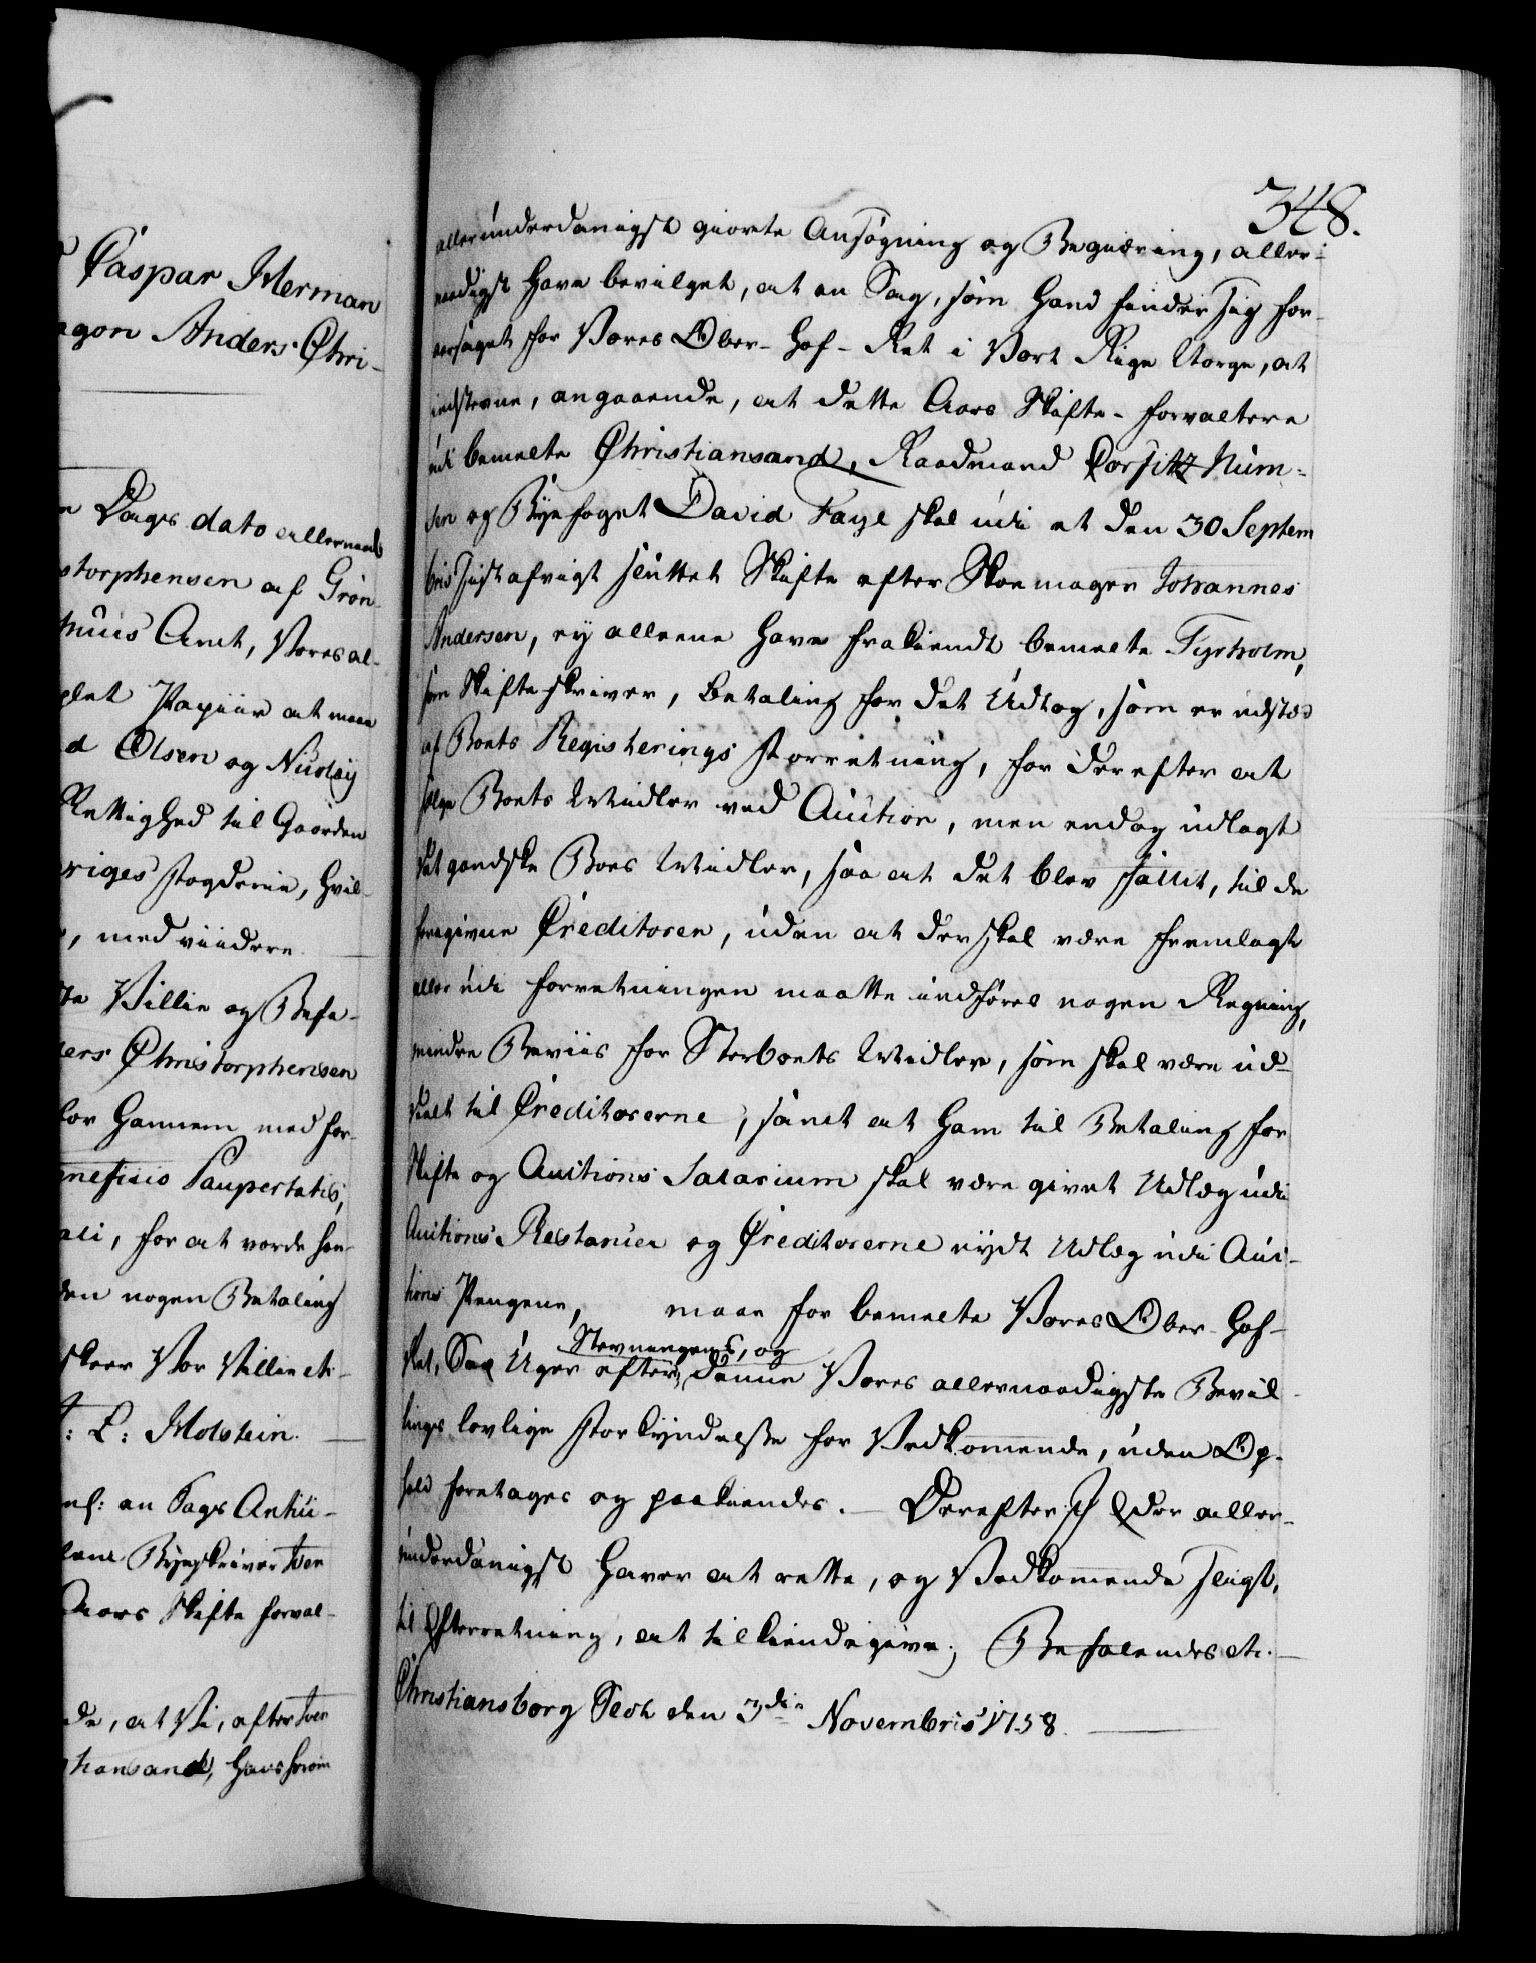 Caspar Herman
Anders Chri-
Dags dato allernaad
storphensen af Grön-
huus Amt, Vores al-
plet Papiir at maa
Olsen og Nicolaij
Rettighed til Gaarden
friges Fogderie, hvil-
, med viidere.
Villie og Befa-
ders Christorphersen
for hannem med for-
neficio Paupertatis,
for at vorde her-
den nogen Betaling
skeer Vor Villie etc-
: L: Holstein.
en Sags Antii-
Byeskriver Iver
Aars Skifte forval-
de, at Vi, efter Iver
stiansand, hans herom
348.
allerunderdanigst giorte Ansøgning og Begiæring, aller-
naadigst have bevilget, at en Sag, som hand finder sig for-
aarsaget for Vores Ober-Hof-Ret i Vort Rige Norge, at
indstevne, angaaende, at dette Aars Skifte-forvaltere
udi bemelte Christiansand, Raadmand Corfitz Num-
sen og Byefoget David Faye skal udi et den 30 Septem
bris sidstafvigt sluttet Skifte efter Skoemager Johannes
Andersen, ey alleene have frakiendt bemelte Tyrholm,
som Skifteskriver, betaling for det Udtog, som er udstæd
af Boets Registerings Forretning, for derefter at
sælge Boets Midler ved Auction, men endog udlagt
det gandske Boes Midler, saa at det blev fallit, til de
foregivne Creditorer, uden at der skal være fremlagt
eller udi forretningen maatte indføres nogen Regning,
mindre Beviis for Sterboets Midler, som skal være ud-
deelt til Creditorerne, samt at ham til Betaling for
Skifte og Auctions Salarium skal være givet Udlæg udi
Auctions Restancer og Creditorerne nydt Udlæg udi Auc-
tions Pengene, maae for bemelte Vores Ober-Hof-
Ret, Sex Uger efter Stevningens, og denne Vores allernaadigste Bevil-
lings lovlige Forkyndelse for Vedkommende, uden Op-
hold foretages og paakiendes. Derefter I Eder aller-
underdanigst haver at rette, og Vedkommende sligt,
til Efterretning, at tilkiendegive; Befalendes etc.
Christiansborg Slot den 3die Novembris 1758.